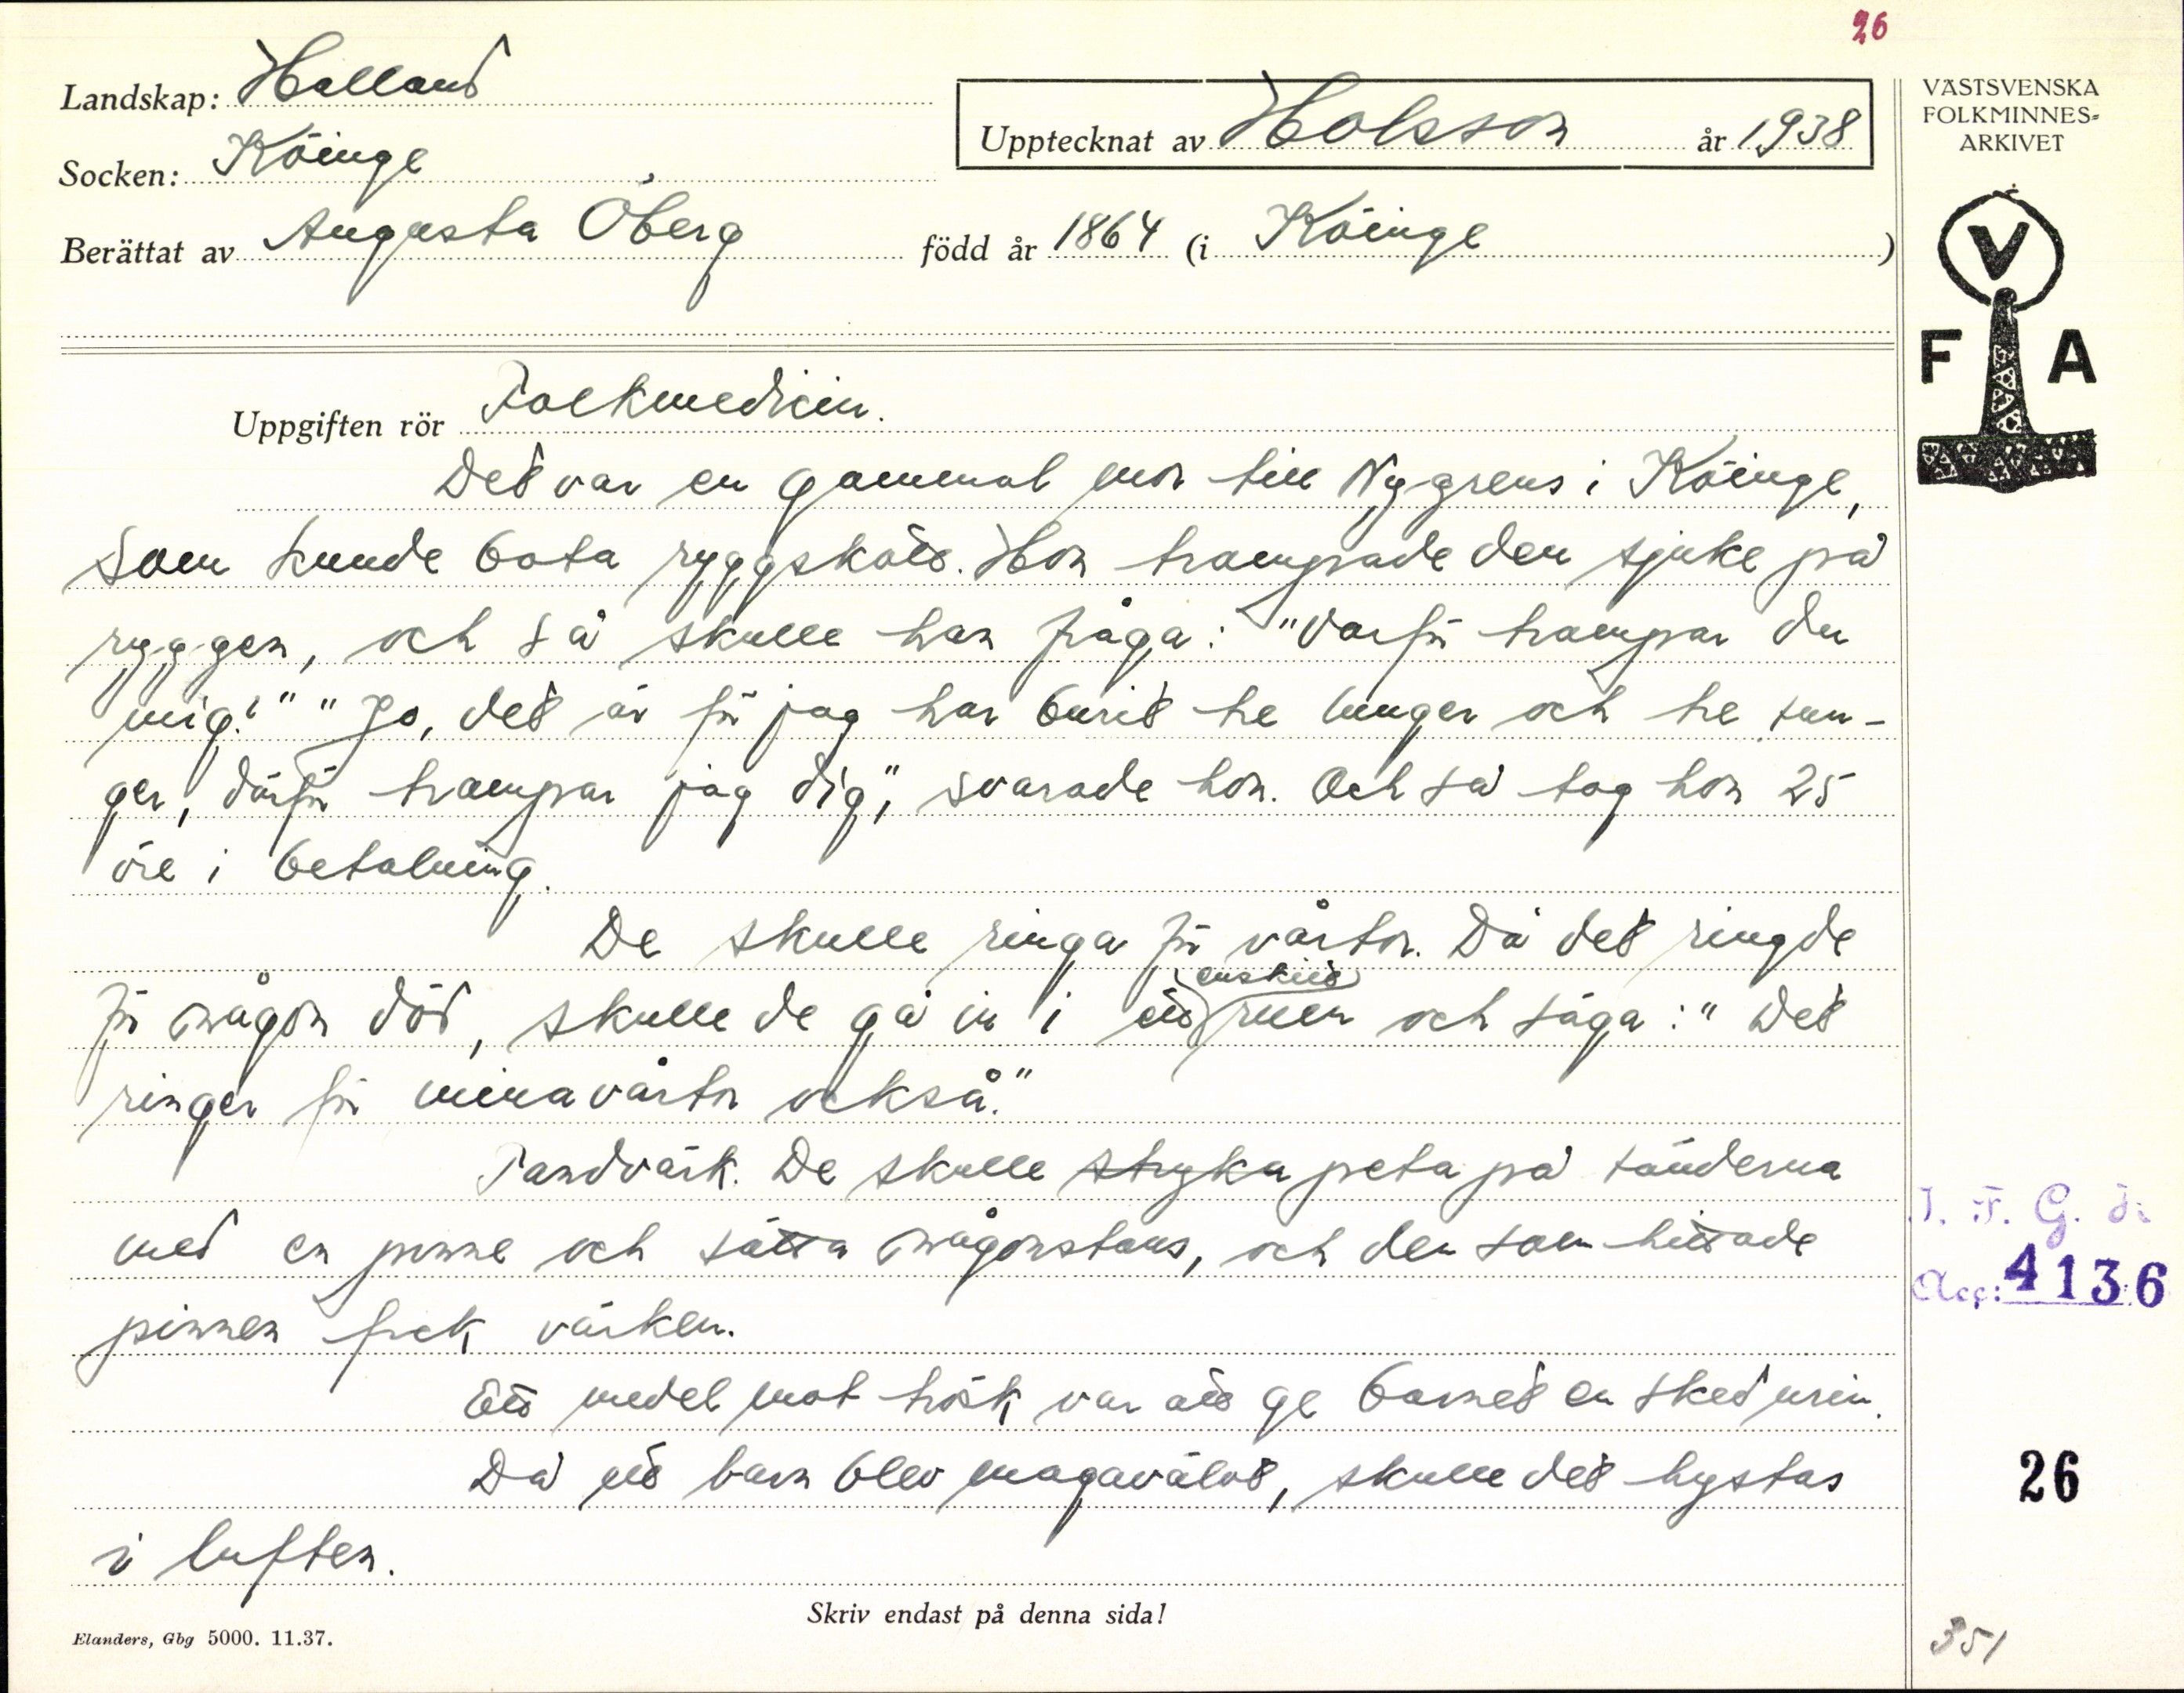 26
Landskap: Halland
Upptecknat av Holsson år 1938
Socken: Köinge
Berättat av Augusta Öberg född år 1864 (i Köinge)
VÄSTSVENSKA
FOLKMINNES=
ARKIVET
V
F A
Uppgiften rör Folkmedicin.
Det var en gammal mor till Nygrens i Köinge,
som kunde bota ryggskott. Hon trampade den sjuke på
ryggen, och så skulle han fråga: "Varför trampar du
mig?" "Jo, det är för jag har burit tre unger och tre sun-
ger, därför trampar jag dig", svarade hon. Och så tog hon 25
öre i betalning.
De skulle ringa för vårtor. Då det ringde
för någon död, skulle de gå in i ett enskilt rum och säga: "Det
ringer för mina vårtor också."
Tandvärk. De skulle stryka peta på tänderna
med en pinne och sätta någonstans, och den som hittade
pinnen fick värken.
Ett medel mot trösk var att ge barnet en sked urin.
Då ett barn blev magavält, skulle det hystas
i luften.
Skriv endast på denna sida!
Elanders, Gbg 5000. 11.37.
I. F. G. H.
Acc: 4136
26
351